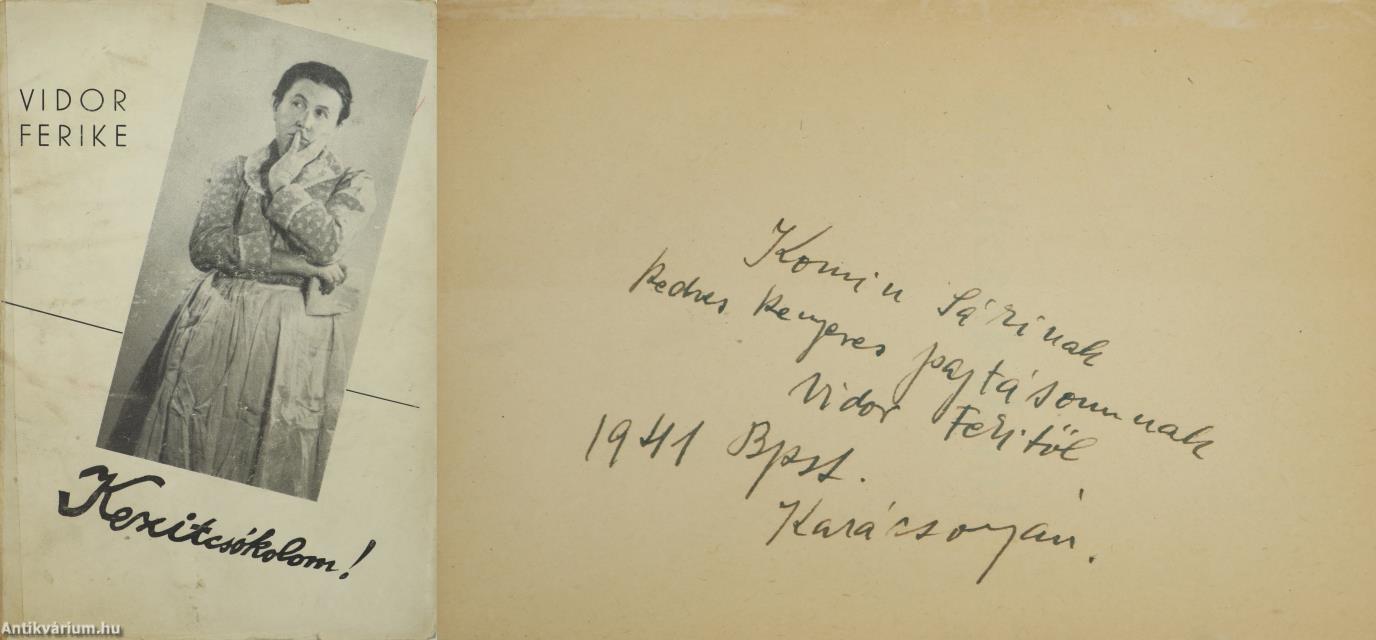 VIDOR
FERIKE
Kezitcsókolom!
Antikvárium.hu
Komin Sárinak
kedves kenyeres pajtásomnak
Vidor Feritől
1941 Bpst.
Karácsonyán.